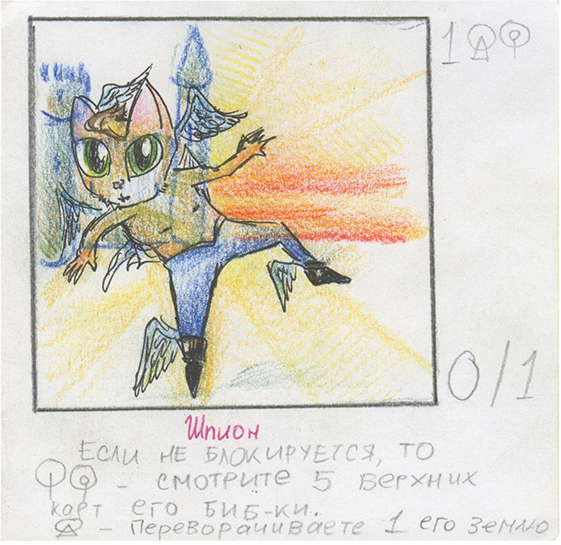 1
0/1
Шпион
Если не блокируется, то
- смотрите 5 верхних
карт его биб-ки.
- Переворачиваете 1 его землю